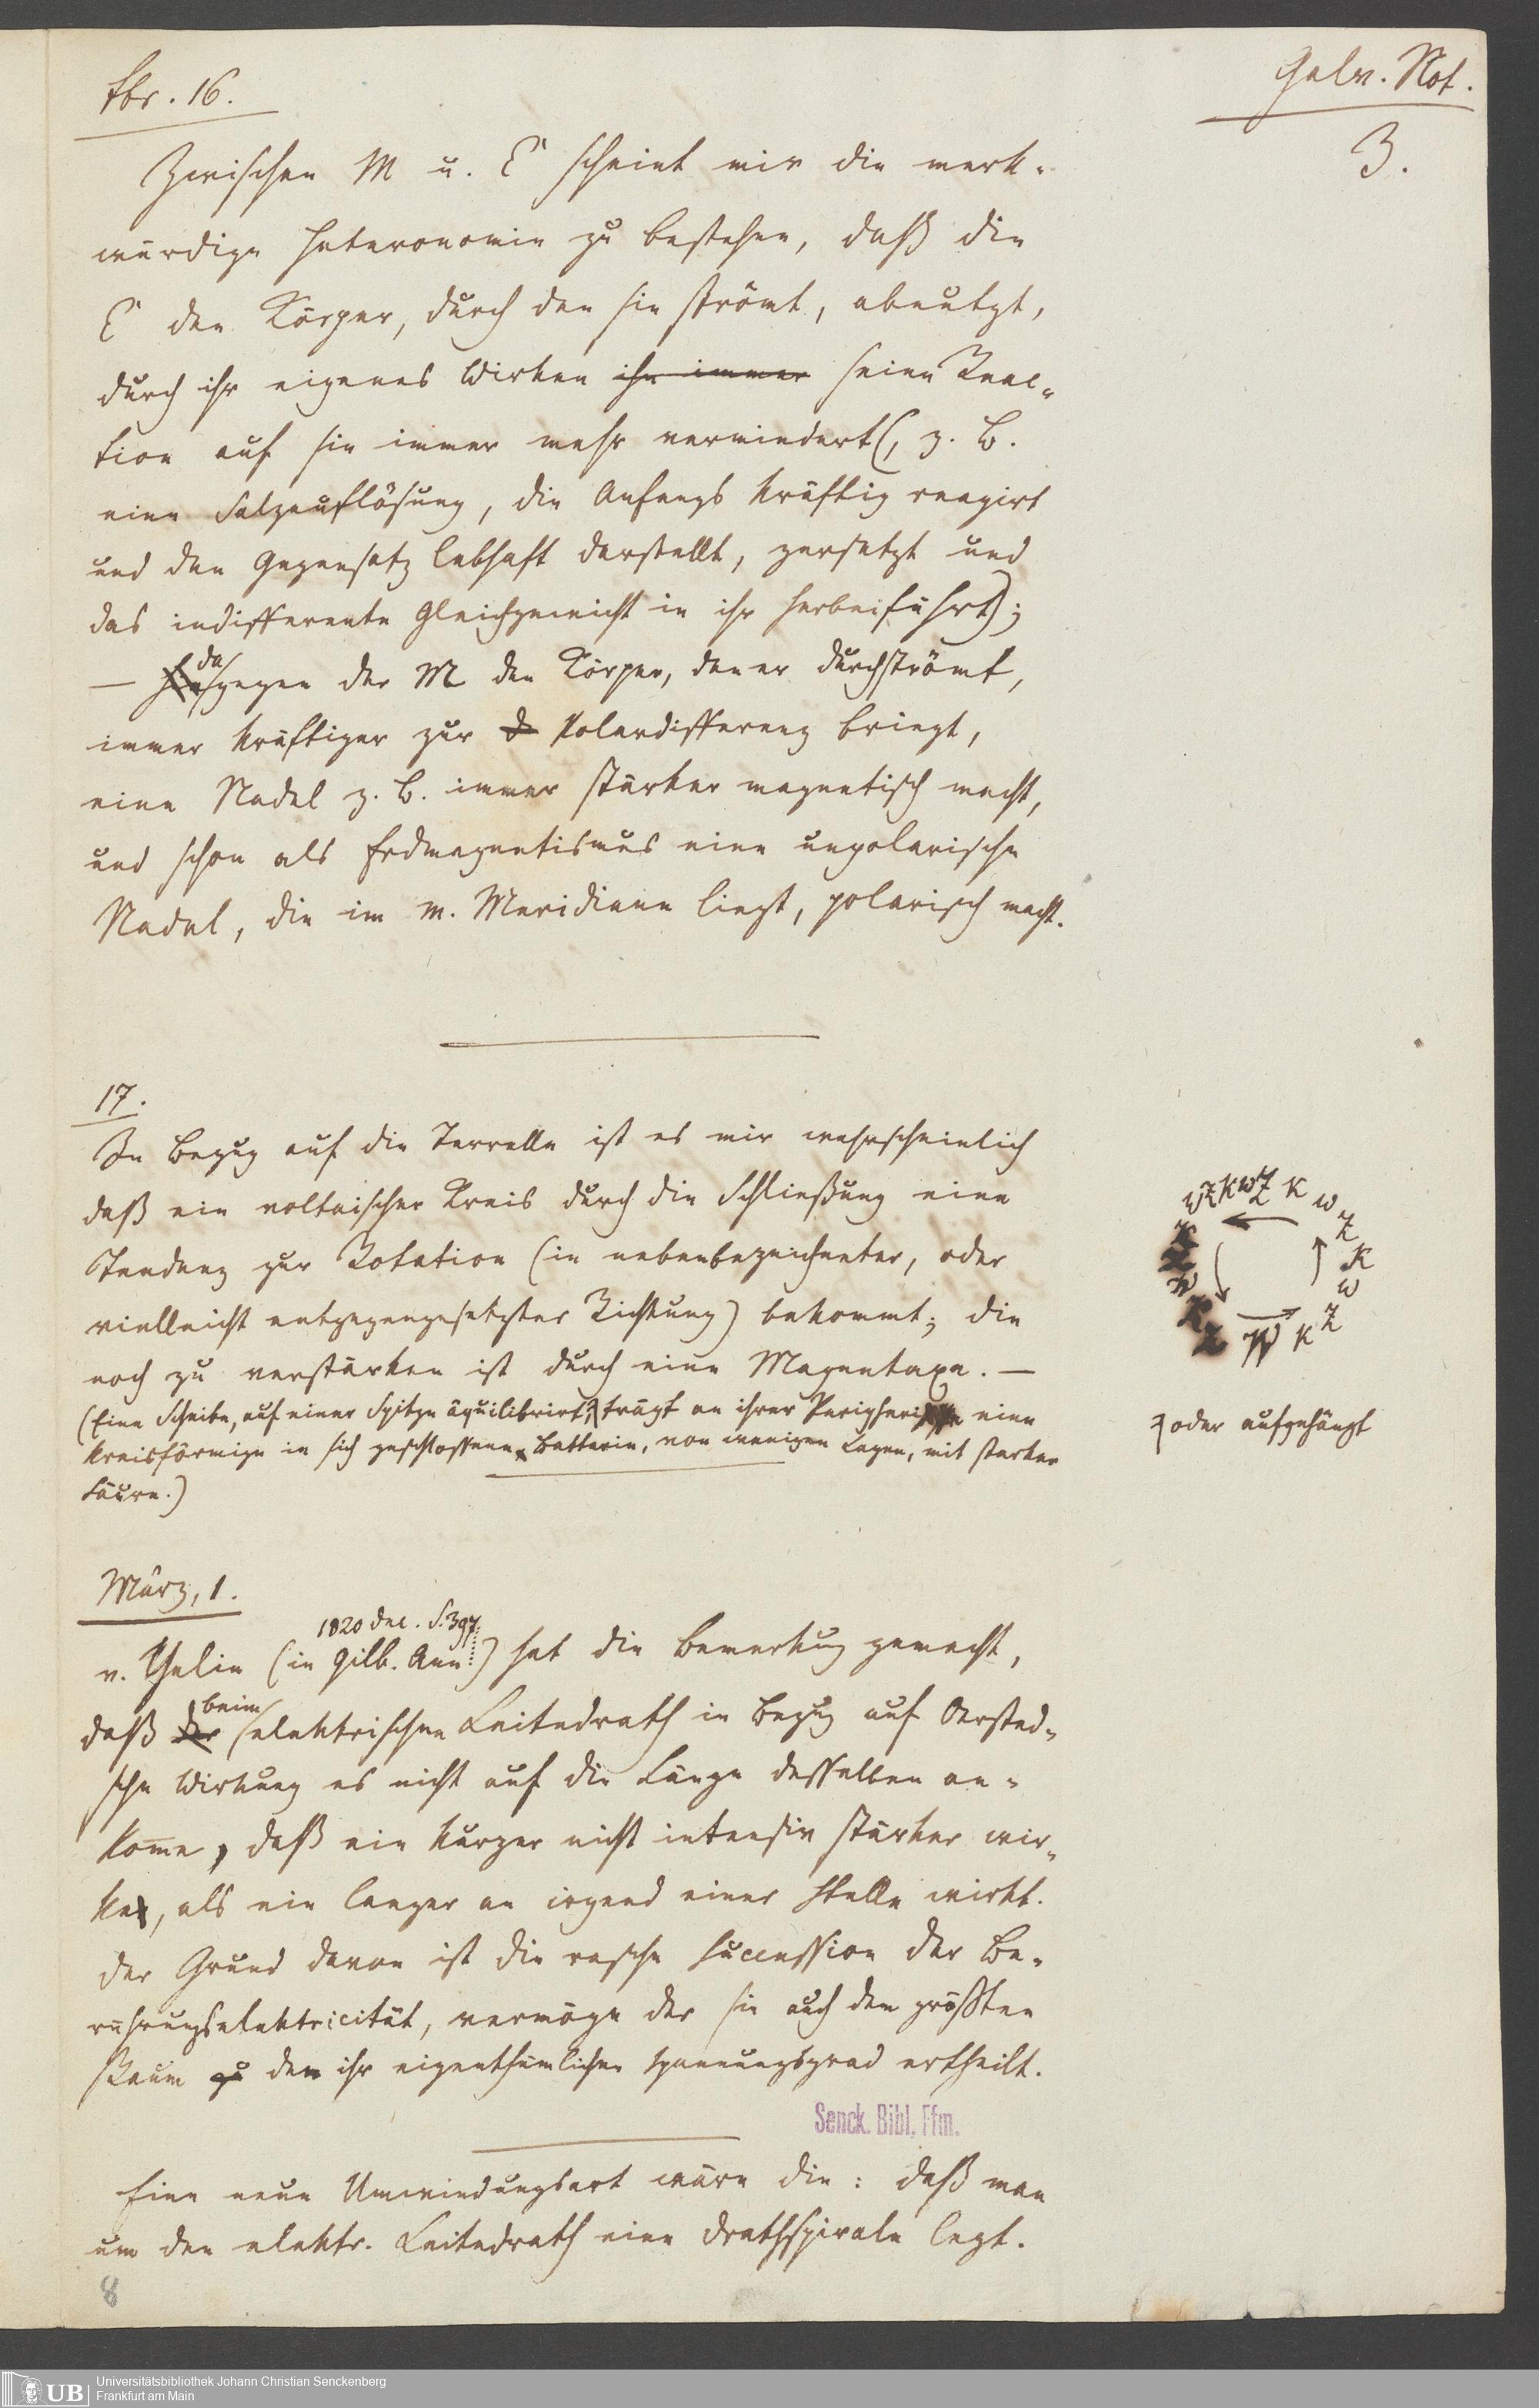 Fbr. 16.
Galv. Not.
3.
Zwischen M u. E scheint mir die merk-
würdige Heteronomie zu bestehen, daß die
E den Körper, durch den sie strömt, abnutzt,
durch ihr eigenes Wirken ihn immer seine Reac-
tion auf sie immer mehr vermindert (, z. B.
eine Salzauflösung, die Anfangs kräftig reagirt
und den Gegensatz lebhaft darstellt, zersetzt und
das indifferente Gleichgewicht in ihr herbeiführt);
da
— hingegen der M den Körper, den er durchströmt,
immer kräftiger zur d Polardifferenz bringt,
eine Nadel z. B. immer stärker magnetisch macht,
und schon als Erdmagnetismus eine unpolarische
Nadel, die im m. Meridiane liegt, polarisch macht.
17.
In Bezug auf die Terrelle ist es mir wahrscheinlich
daß ein voltaischer Kreis durch die Schließung eine
Tendenz zur Rotation (in nebenbezeichneter, oder
vielleicht entgegengesetzter Richtung) bekommt; die
noch zu verstärken ist durch eine Magnetaxe. —
(Eine Scheibe, auf einer Spitze äquilibrirt, trägt an ihrer Peripherie eine
kreisförmige in sich geschlossene Batterie, von wenigen Lagen, mit starker
Säure.)
W Z K W Z K W Z K W Z K W Z K W Z K
oder aufgehängt
März, 1.
1820 Dec. S. 397
v. Yelin (in Gilb. Ann. ) hat die Bemerkung gemacht,
beim
daß der elektrischen Leitedrath in Bezug auf Oersted-
sche Wirkung es nicht auf die Länge desselben an-
kome, daß ein kurzer nicht intensiv stärker wir-
ke, als ein langer an irgend einer Stelle wirkt.
Der Grund davon ist die rasche Succession der Be-
rührungselektricität, vermöge der sie auch dem größten
Raum zu den ihr eigenthümlichen Spannungsgrad ertheilt.
Senck. Bibl. Ffm.
Eine neue Umwindungsart wäre die: daß man
um den elektr. Leitedrath eine Drathspirale legt.
8
UB
Universitätsbibliothek Johann Christian Senckenberg
Frankfurt am Main